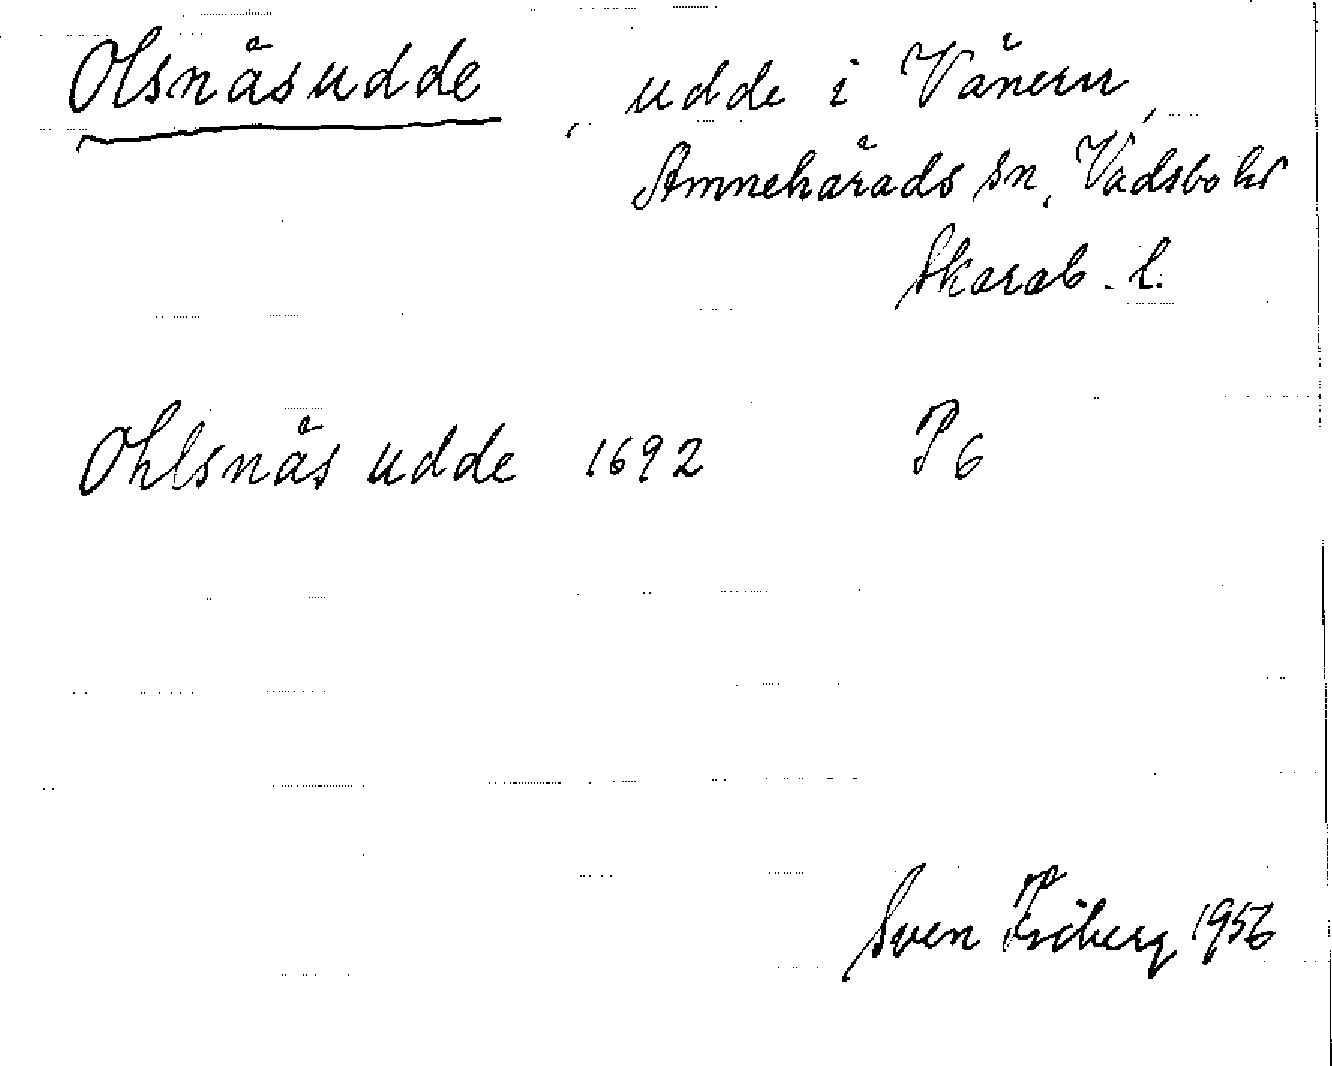 Olsnäsudde, udde i Vänern,
Amnehärads sn, Vadsbo hd
Skarab. l.
Ohlsnäs udde 1692 P 6
Sven Friberg 1956